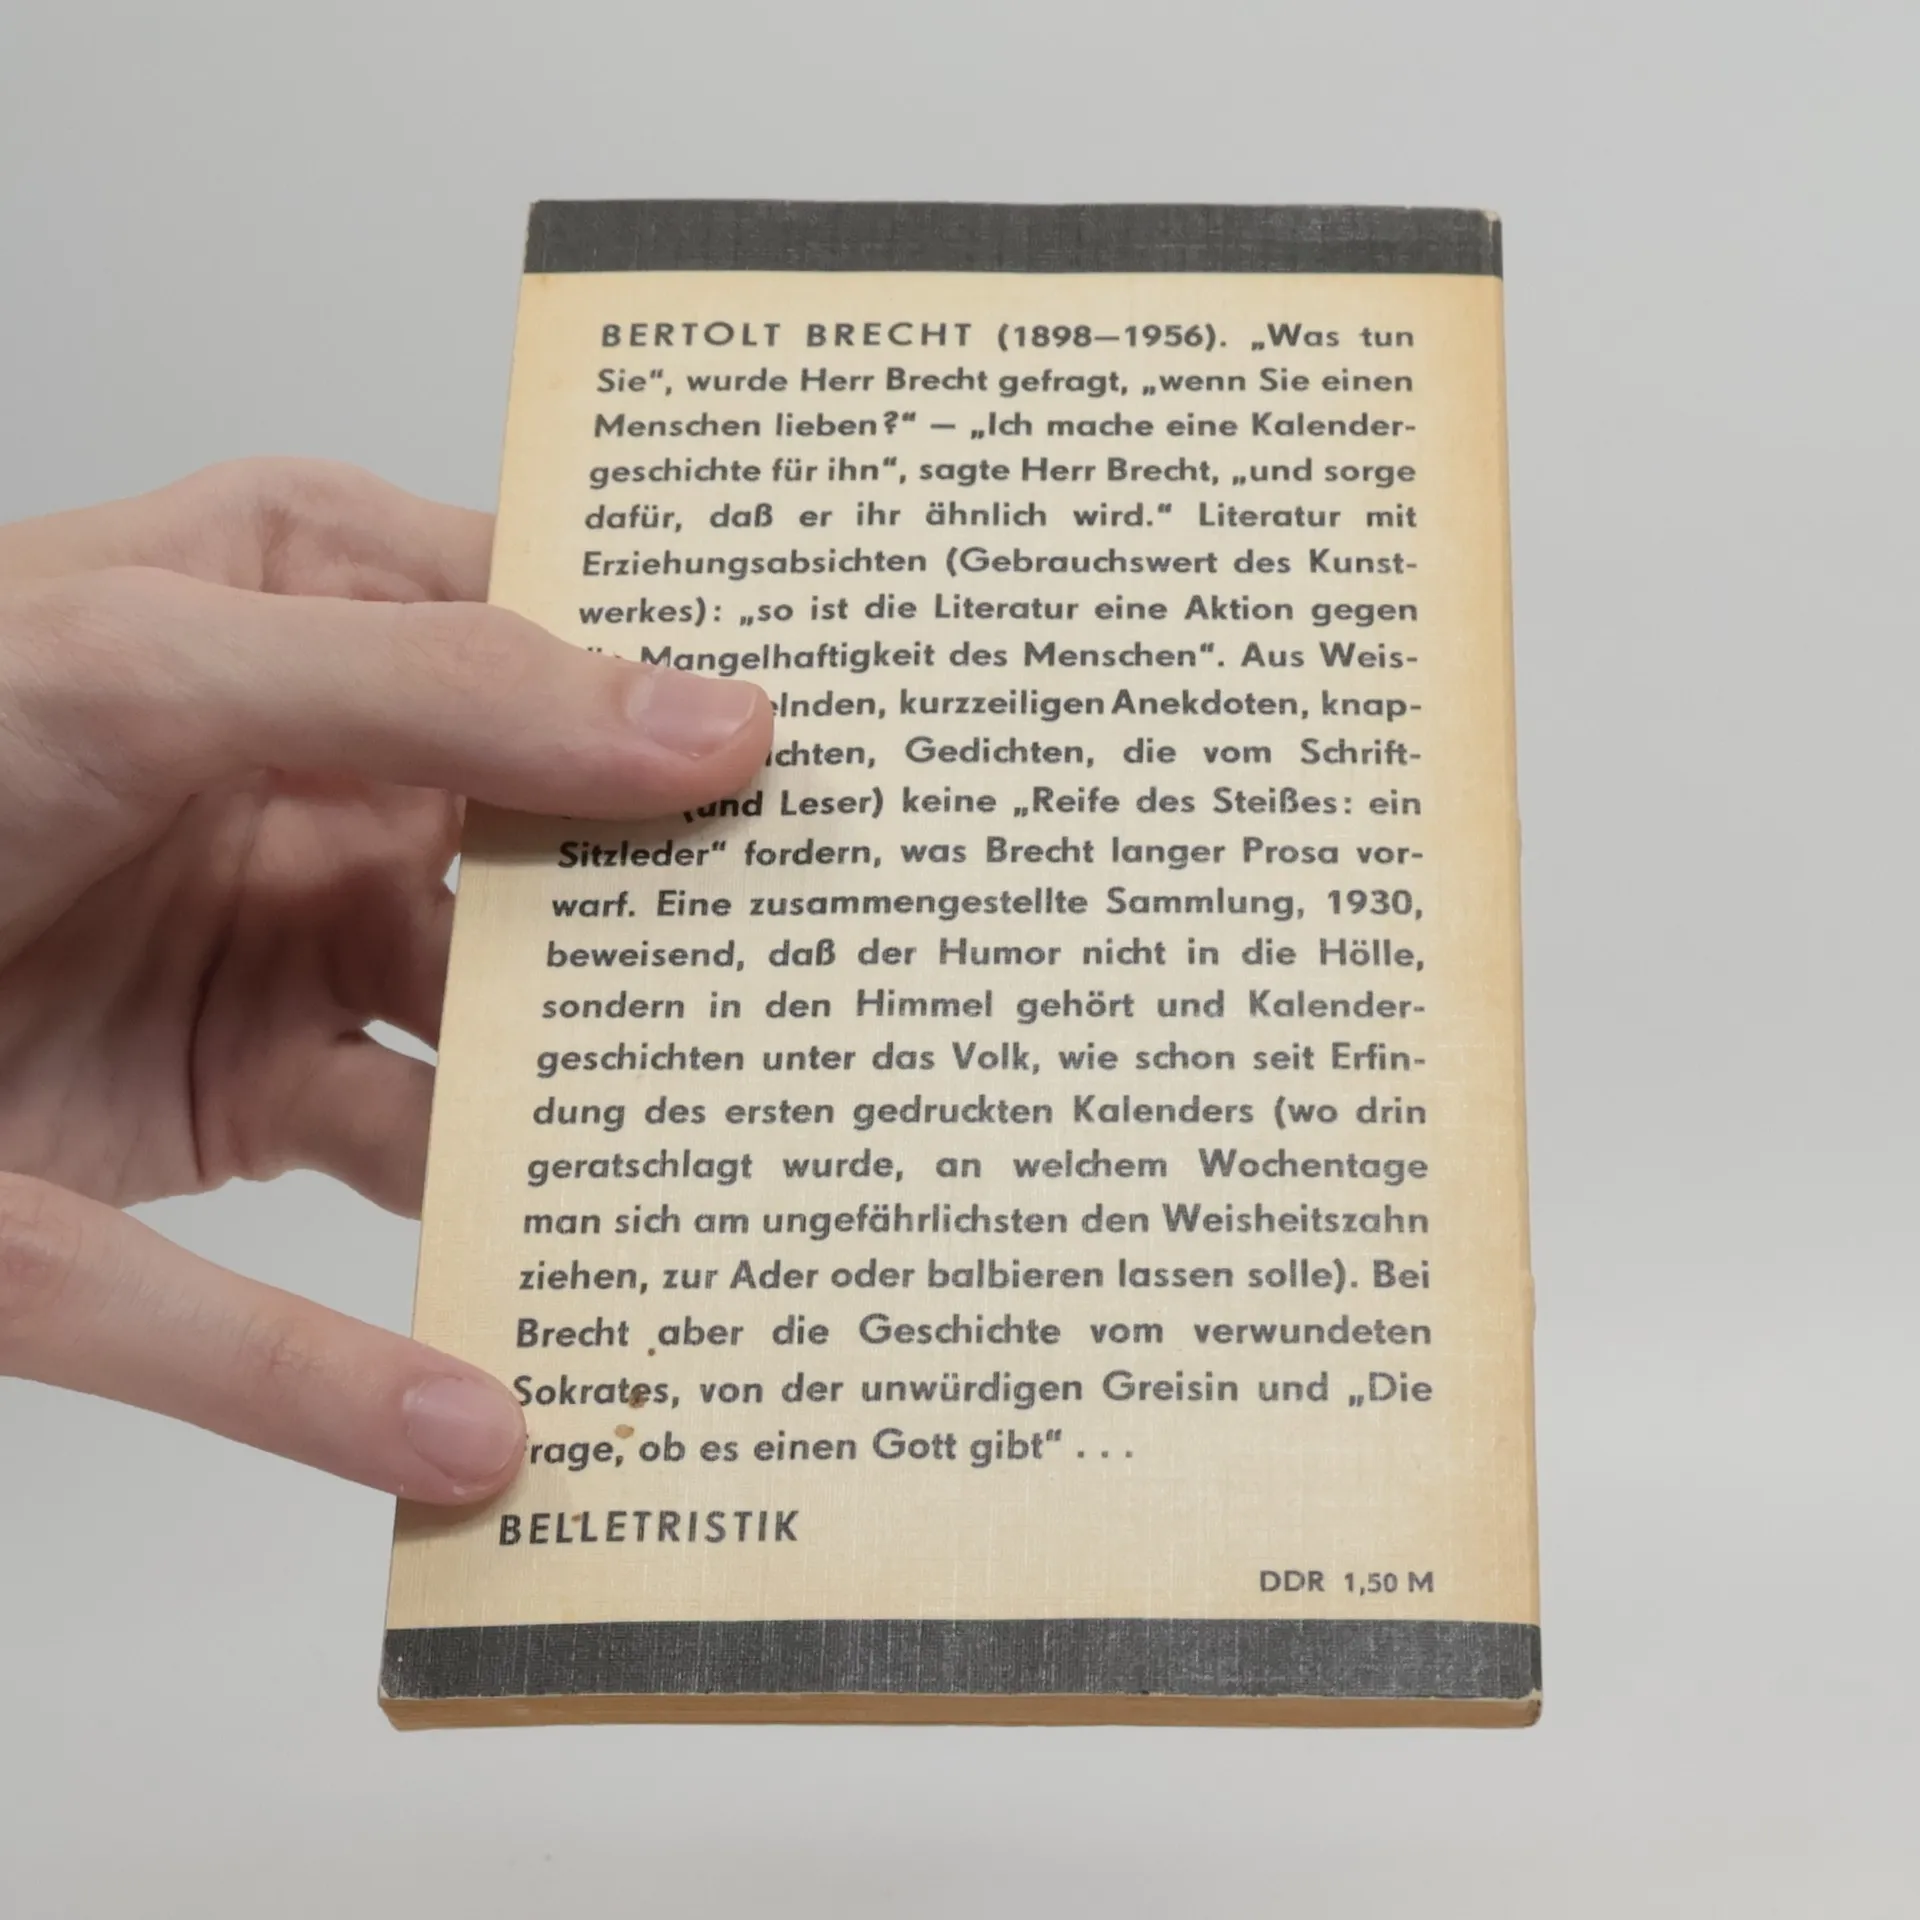 BERTOLT BRECHT (1898—1956). „Was tun
Sie“, wurde Herr Brecht gefragt, „wenn Sie einen
Menschen lieben?“ — „Ich mache eine Kalender-
geschichte für ihn“, sagte Herr Brecht, „und sorge
dafür, daß er ihr ähnlich wird.“ Literatur mit
Erziehungsabsichten (Gebrauchswert des Kunst-
werkes): „so ist die Literatur eine Aktion gegen
Mangelhaftigkeit des Menschen“. Aus Weis-
kurzzeiligen Anekdoten, knap-
Gedichten, die vom Schrift-
(und Leser) keine „Reife des Steißes: ein
Sitzleder“ fordern, was Brecht langer Prosa vor-
warf. Eine zusammengestellte Sammlung, 1930,
beweisend, daß der Humor nicht in die Hölle,
sondern in den Himmel gehört und Kalender-
geschichten unter das Volk, wie schon seit Erfin-
dung des ersten gedruckten Kalenders (wo drin
geratschlagt wurde, an welchem Wochentage
man sich am ungefährlichsten den Weisheitszahn
ziehen, zur Ader oder balbieren lassen solle). Bei
Brecht aber die Geschichte vom verwundeten
Sokrates, von der unwürdigen Greisin und „Die
ob es einen Gott gibt“ . . .
BELLETRISTIK
DDR 1,50 M